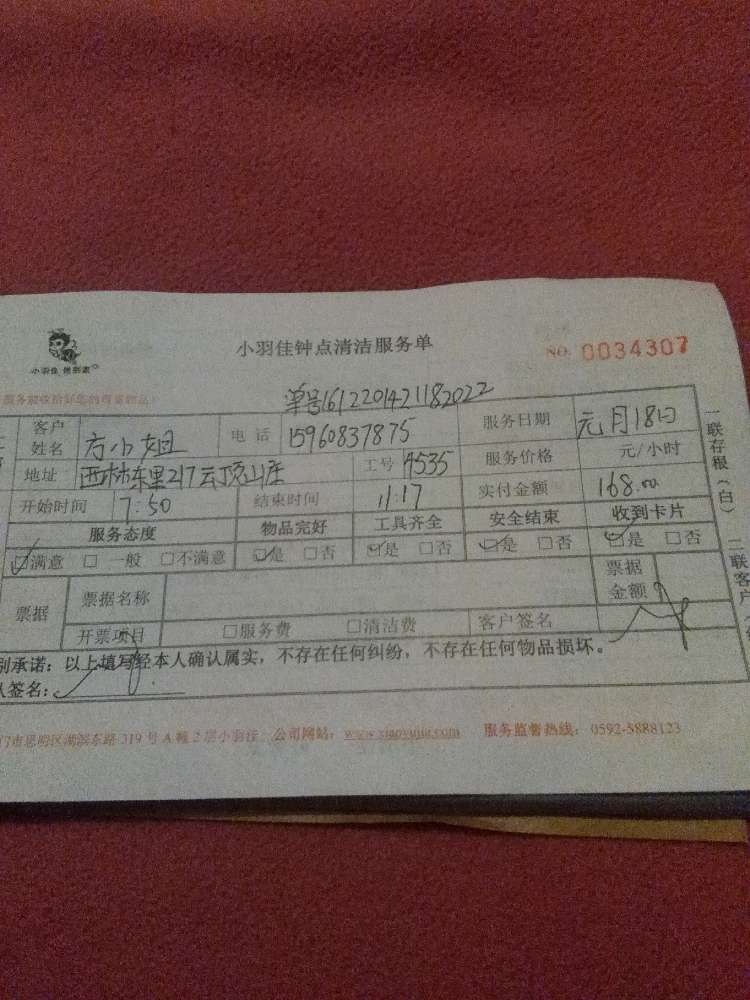 小羽佳钟点清洁服务单
NO. 0034307
小羽佳
单号1612201421182022
客户姓名 方小姐 电话 15960837875 服务日期 元月18日
地址 西林东里217云顶山庄 工号 4535 服务价格 元/小时
开始时间 7:50 结束时间 11:17 实付金额 168.00
服务态度 物品完好 工具齐全 安全结束 收到卡片
☑满意 □一般 □不满意 ☑是 □否 ☑是 □否 ☑是 □否 ☑是 □否
票据 票据名称 票据金额
开票项目 □服务费 □清洁费 客户签名
别承诺：以上填写经本人确认属实，不存在任何纠纷，不存在任何物品损坏。
人签名：
门市思明区湖滨东路 319 号 A 幢 2 层小羽佳 公司网站： 服务监督热线： 0592-5888123
一联存根（白） 二联客户